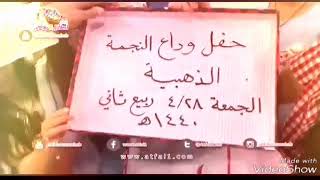 حفل وداع النجمة
الذهبية
الجمعة ٤/٢٨ ربيع ثاني
١٤٤٠هـ
www.atfal1.com
Made with
VideoShow